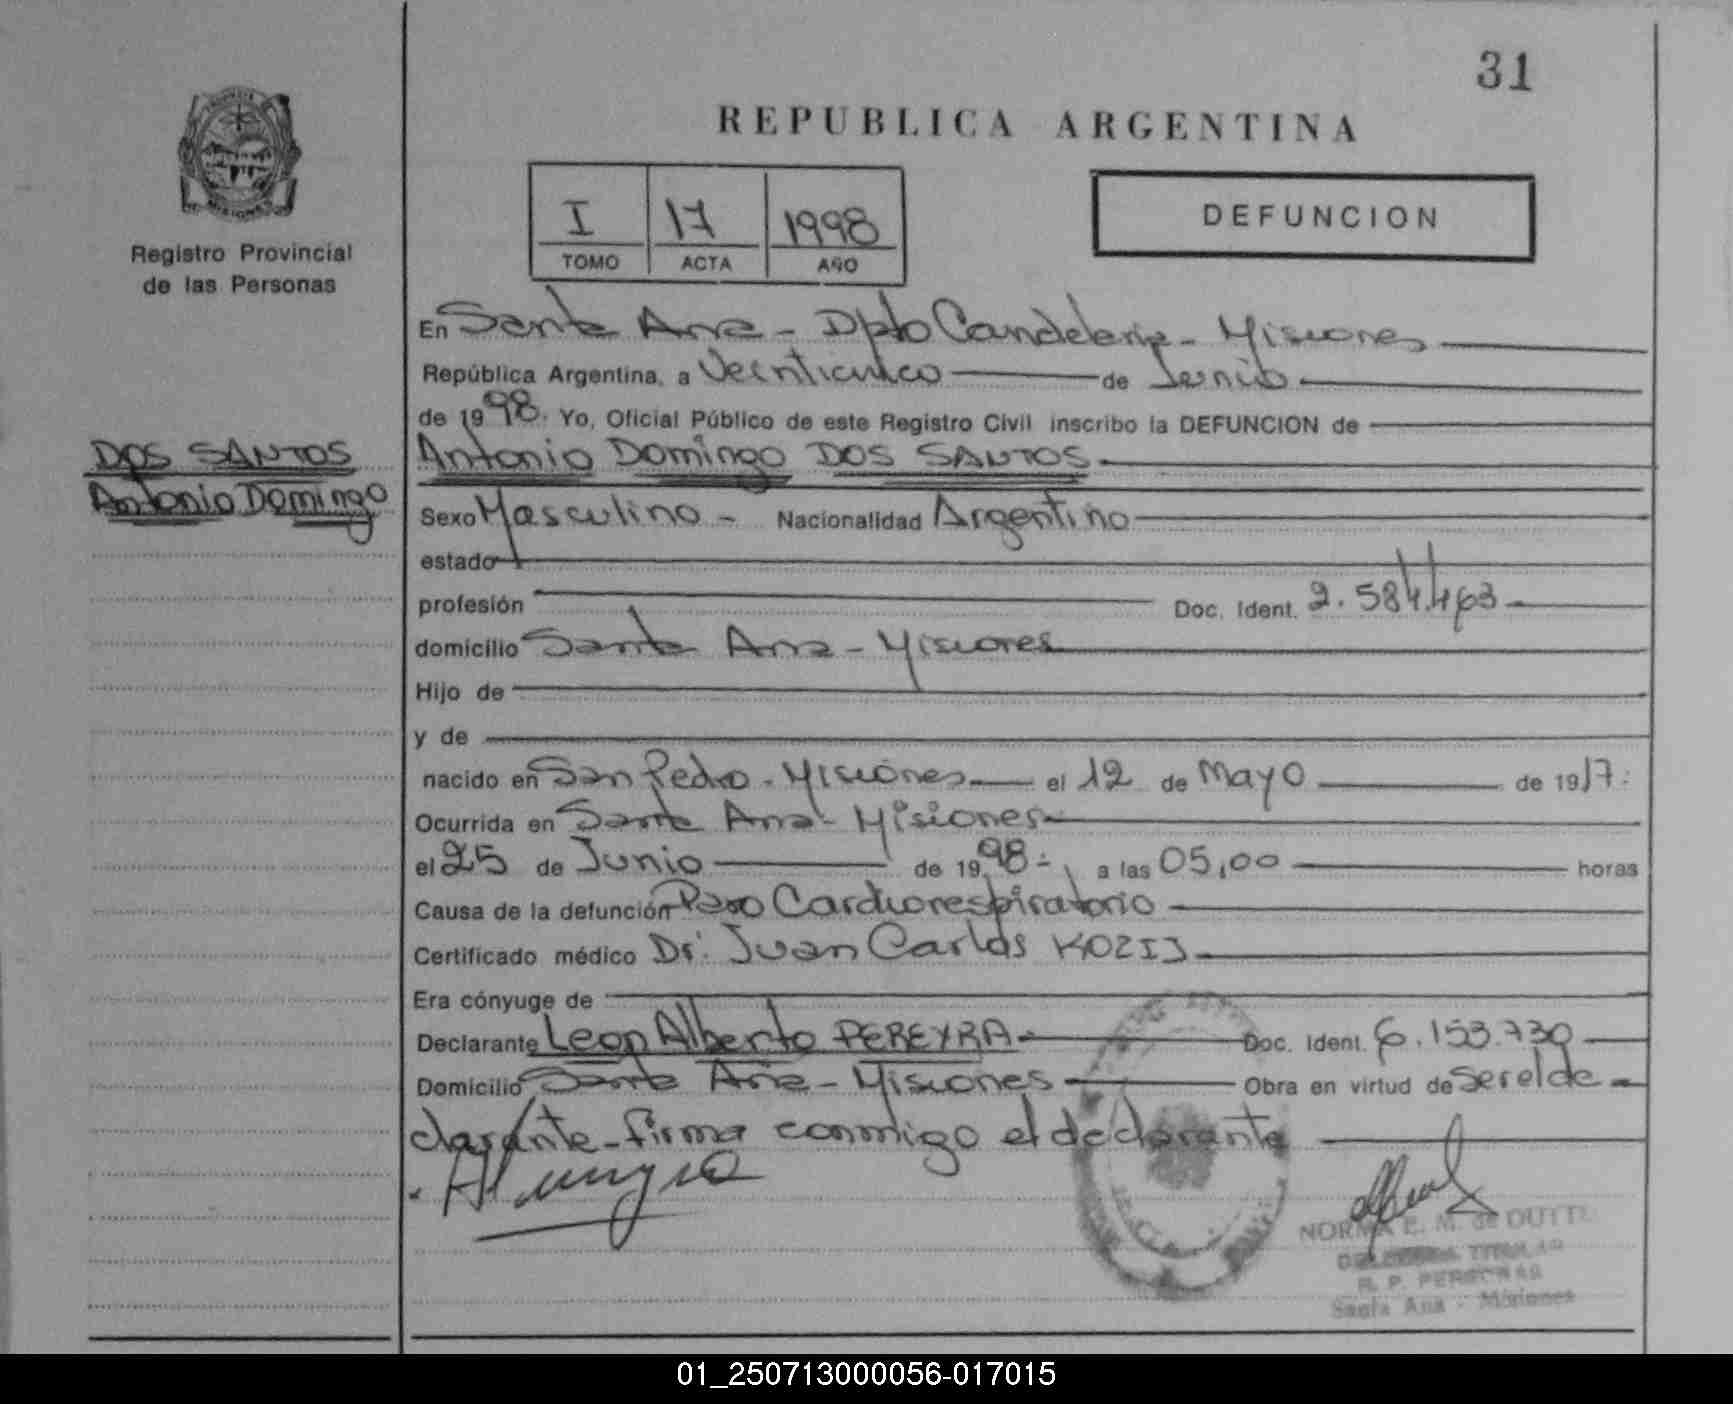 31
REPUBLICA ARGENTINA
I 17 1998
TOMO ACTA AÑO
DEFUNCION
Registro Provincial
de las Personas
En Santa Ana - Dpto Candelaria - Misiones
República Argentina, a Veinticinco de Junio
de 1998. Yo, Oficial Público de este Registro Civil inscribo la DEFUNCION de
DOS SANTOS
Antonio Domingo
Antonio Domingo DOS SANTOS
Sexo Masculino - Nacionalidad Argentino
estado
profesión Doc. Ident. 2.584.463
domicilio Santa Ana - Misiones
Hijo de
y de
nacido en San Pedro - Misiones el 12 de Mayo de 1917.
Ocurrida en Santa Ana - Misiones
el 25 de Junio de 1998 - a las 05,00 horas
Causa de la defunción Paro Cardiorespiratorio
Certificado médico Dr. Juan Carlos KOZIJ
Era cónyuge de
Declarante Leon Alberto PEREYRA Doc. Ident. 6.153.730
Domicilio Santa Ana - Misiones Obra en virtud de Ser el de
clarante - firma conmigo el declarante
NORMA E. M. de
TITULAR
R. P. PERSONAS
Santa Ana - Misiones
01_250713000056-017015